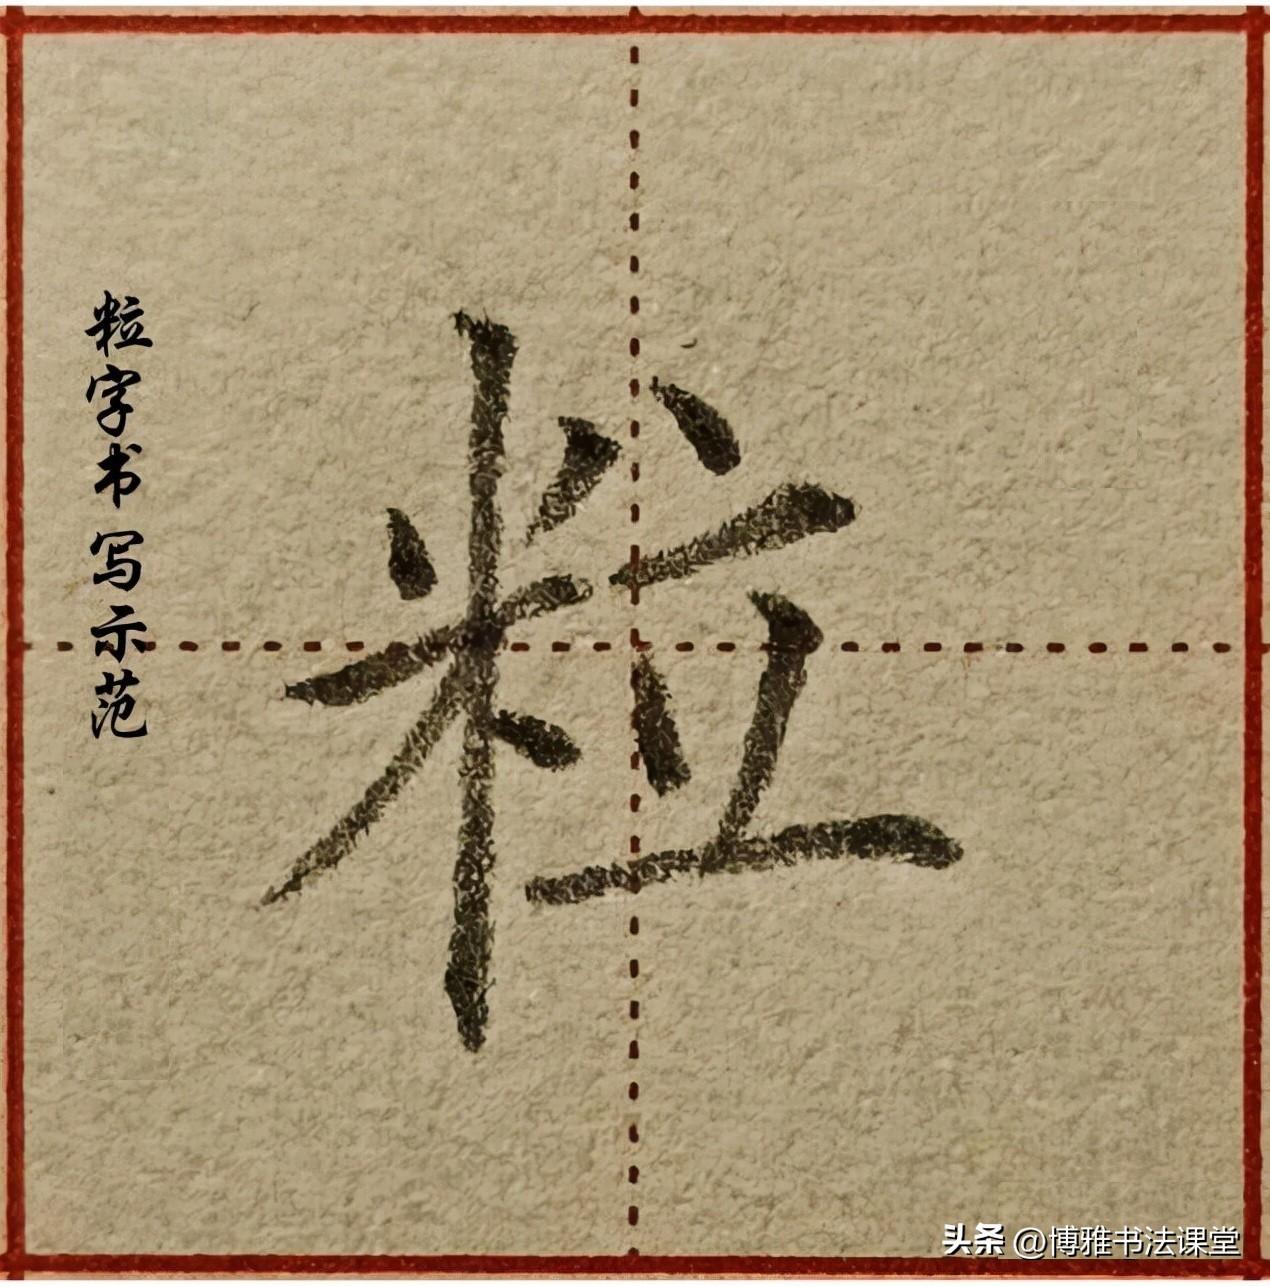 粒字书写示范
粒
头条 @博雅书法课堂